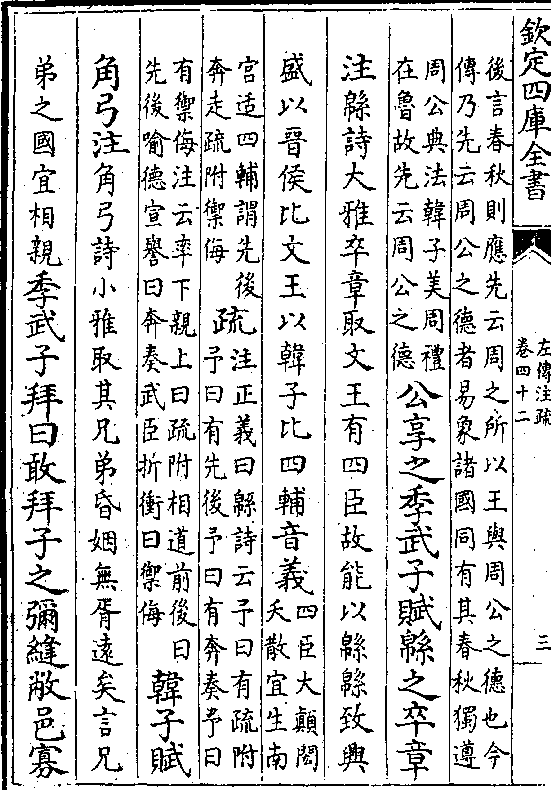 欽定四庫全書
左傳注疏
卷四十二
三
後言春秋則應先云周之所以王與周公之德也今
傳乃先云周公之德者易象諸國同有其春秋獨遵
周公典法韓子美周禮
在魯故先云周公之德
公享之季武子賦緜之卒章
注緜詩大雅卒章取文王有四臣故能以緜緜致興
盛以晉侯比文王以韓子比四輔音義
四臣大顛閎
夭散宜生南
宫适四輔謂先後
奔走疏附禦侮
疏
注正義曰緜詩云予曰有疏附
予曰有先後予曰有奔奏予曰
有禦侮注云率下親上曰疏附相道前後曰
先後喻德宣譽曰奔奏武臣折衝曰禦侮
韓子賦
角弓注角弓詩小雅取其兄弟昏姻無胥遠矣言兄
弟之國宜相親季武子拜曰敢拜子之彌縫敝邑寡